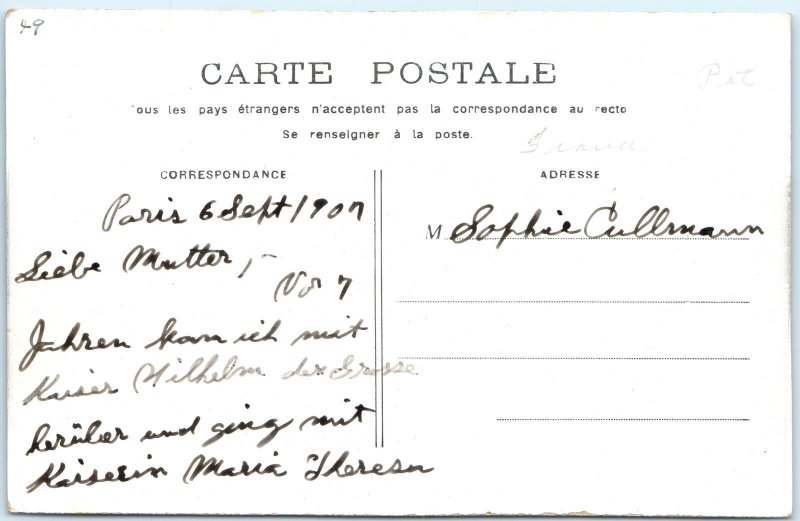 49
CARTE POSTALE
ous les pays étrangers n'acceptent pas la correspondance au recto
Se renseigner à la poste.
CORRESPONDANCE
Paris 6 Sept 1907
Liebe Mutter,-
Vor 7
Jahren kam ich mit
Kaiser Wilhelm der Grosse
herüber und ging mit
Kaiserin Maria Theresa
ADRESSE
M Sophie Cullmann